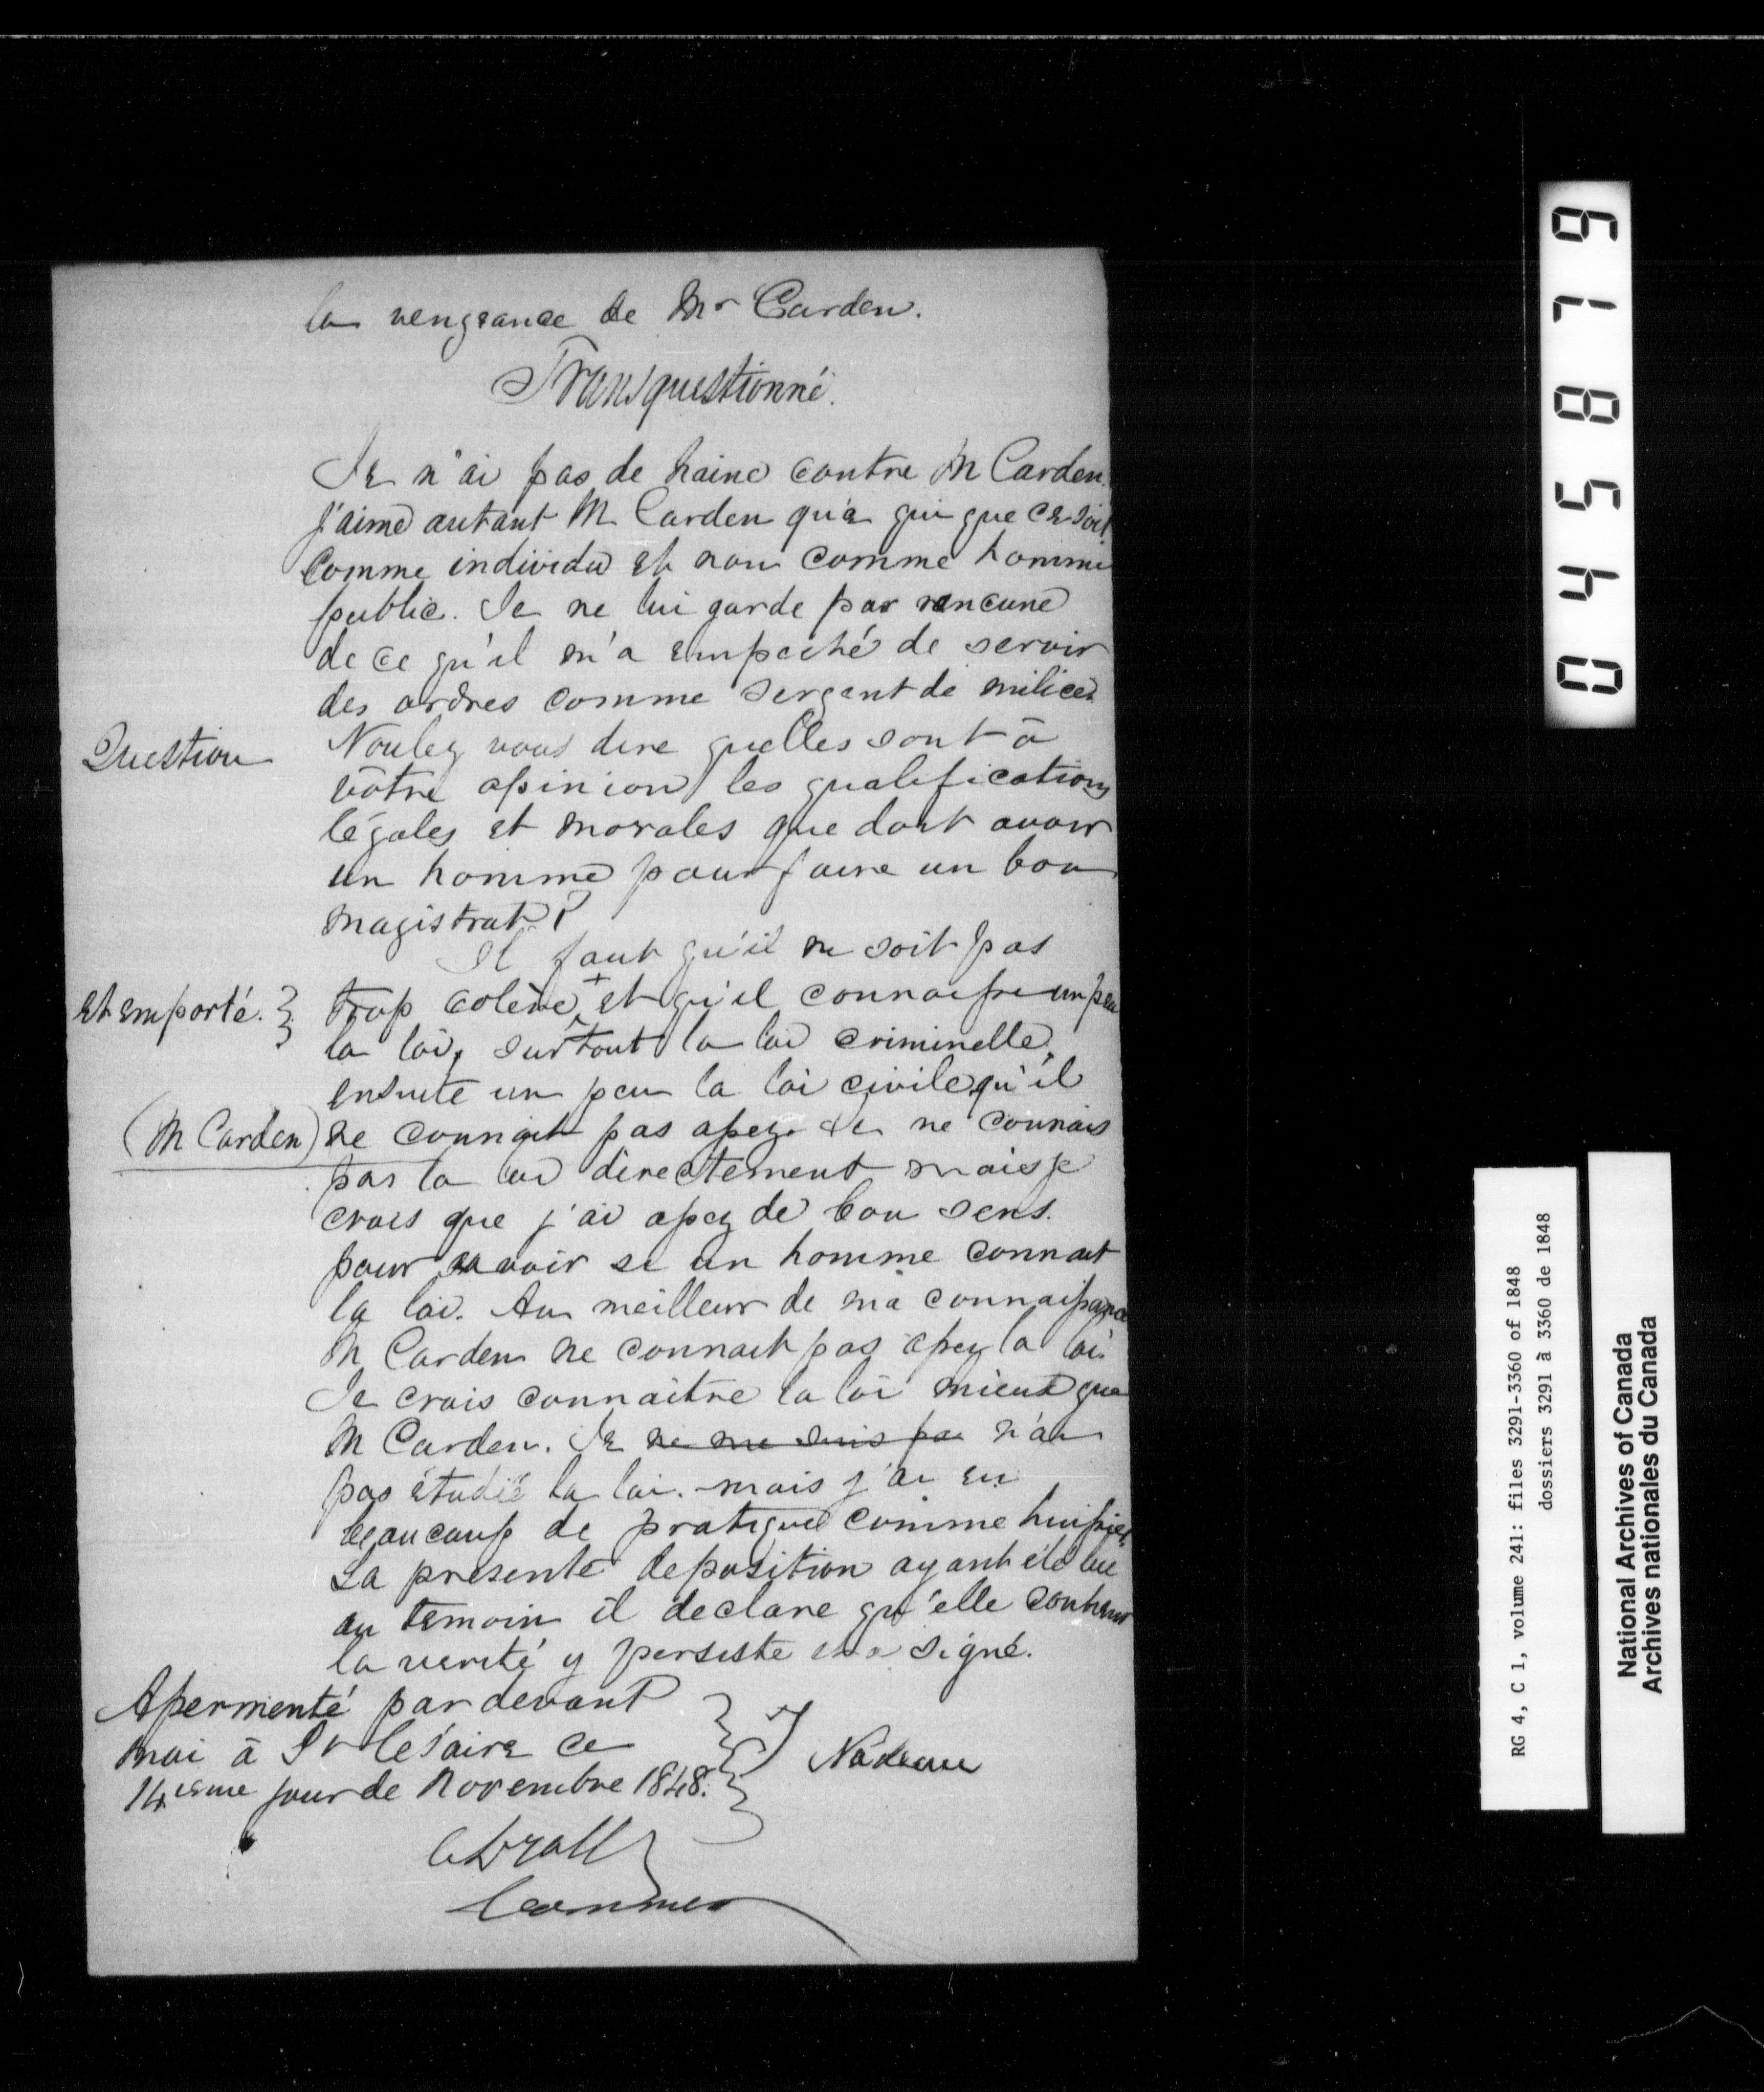 la vengeance de Mr Carden.
Transquestionné.
Je n'ai pas de haine contre M Carden.
J'aime autant M Carden qu'a qui que ce soit
Comme individu et non comme homme
public. Je ne lui garde pas rancune
de ce qu'il m'a empeché de servir
des ordres comme Sergent de milice
Question Voulez vous dire quelles sont à
vôtre opinion les qualifications
légales et morales que doit avoir
un homme pour faire un bon
magistrat?
Il faut qu'il ne soit pas
et emporté. trop colère + et qu'il connaisse un peu
la loi, surtout la loi criminelle,
ensuite un peu la loi civile qu'il
(M Carden) ne connait pas assez. Je ne connais
pas la loi directement mais je
crois que j'ai assez de bon sens.
pour savoir si un homme connait
la loi. Au meilleur de ma connaissance
M Carden ne connait pas assez la loi.
Je crois connaître la loi mieux que
M Carden. Je ne me suis pas n'ai
pas étudié la loi. mais j'ai eu
beaucoup de pratique comme huissier
La presente deposition ayant été lue
au temoin il declare qu'elle contient
la verité y persiste et a signé.
Assermenté par devant
moi à St Césaire ce
14ieme jour de Novembre 1848.
J Nadeau
Commer
045879
RG 4, C 1, volume 241: files 3291-3360 of 1848
dossiers 3291 à 3360 de 1848
National Archives of Canada
Archives nationales du Canada